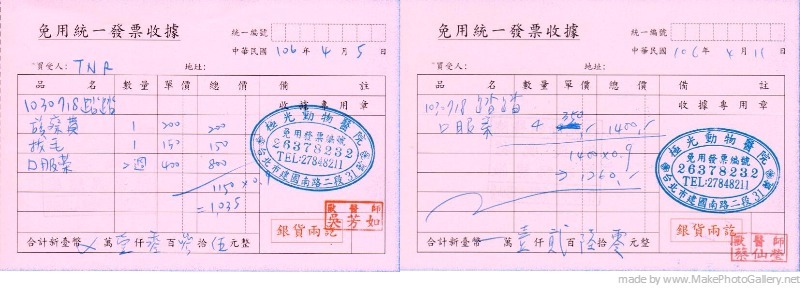 免用統一發票收據
統一編號
中華民國 106 年 4 月 5 日
買受人: TNR 地址:
品名 數量 單價 總價 備註
1030718 踏踏 收據專用章
診察費 1 200 200
拔毛 1 150 150
口服藥 2週 400 800
1150 × 0.9
= 1,035
極光動物醫院
免用發票編號
26378232
TEL:27848211
台北市建國南路二段31號
獸醫師
吳芳如
銀貨兩訖
合計新臺幣 萬壹仟零百參拾伍元整
免用統一發票收據
統一編號
中華民國 106 年 4 月 11 日
買受人: 地址:
品名 數量 單價 總價 備註
1030718 踏踏 收據專用章
口服藥 4 350 1400
1400 × 0.9
→ 1260
極光動物醫院
免用發票編號
26378232
TEL:27848211
台北市建國南路二段31號
銀貨兩訖
獸醫師
蔡仙瑩
合計新臺幣 萬壹仟貳百陸拾零元整
made by www.MakePhotoGallery.net